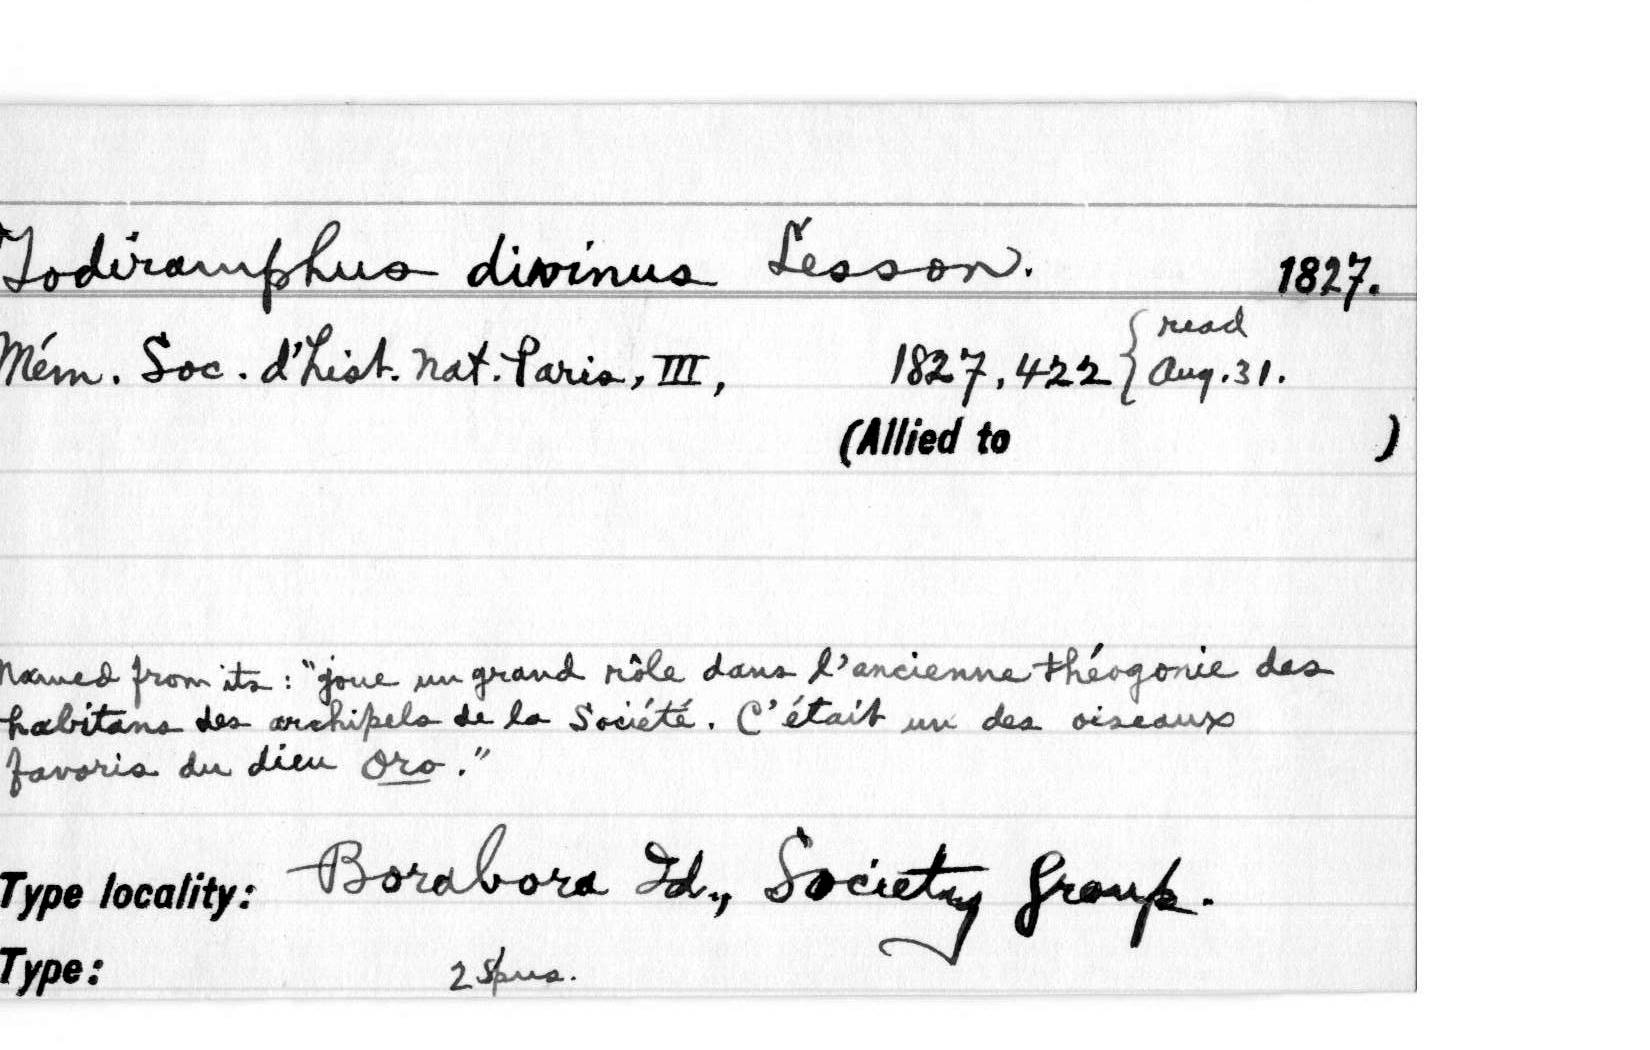 Todiramphus divinus Lesson. 1827.
Mém. Soc. d'hist. nat. Paris, III, 1827, 422 { read Aug. 31.
(Allied to )
Named from its: "joue un grand rôle dans l'ancienne théogonie des
habitans des archipels de la Société. C'était un des oiseaux
favoris du dieu Oro."
Type locality: Borabora Id., Society Group.
Type: 2 Spms.